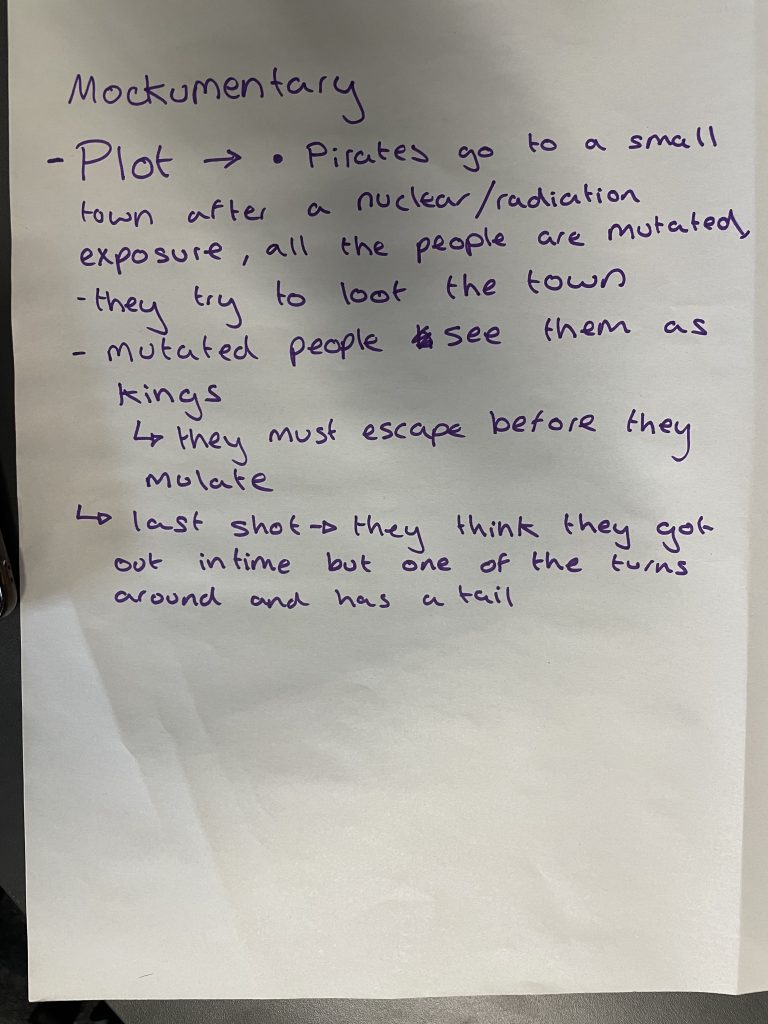 Mockumentary
- Plot → • Pirates go to a small
town after a nuclear/radiation
exposure, all the people are mutated,
- they try to loot the town
- mutated people see them as
kings
↳ they must escape before they
mutate
↳ last shot → they think they got
out in time but one of the turns
around and has a tail